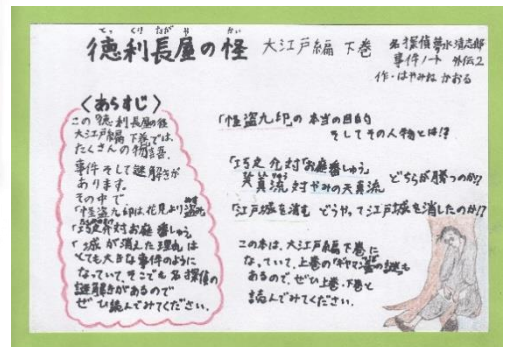 とっくりながやかい
徳利長屋の怪 大江戸編 下巻
名探偵夢水清志郎
事件ノート 外伝2
作・はやみねかおる
〈あらすじ〉
この徳利長屋の怪
大江戸編 下巻では、
たくさんの物語、
事件そして謎解きが
あります。
その中で
「怪盗九印は、花見より盗み」
「巧之介対お庭番しゅう」
「城が消えた理由」は
とても大きな事件のように
なっていて、そこでも名探偵の
謎解きがあるので
ぜひ読んでみてください。
「怪盗九印」の本当の目的
そしてその人物とは!?
「巧之介対お庭番しゅう」
真流対やみの天真流
どちらが勝つのか!?
「江戸城を消す どうやって江戸城を消したのか!?
この本は、大江戸編下巻に
なっていて、上巻の「ギヤマン壺の謎」も
あるので、ぜひ上巻・下巻と
読んでみてください。